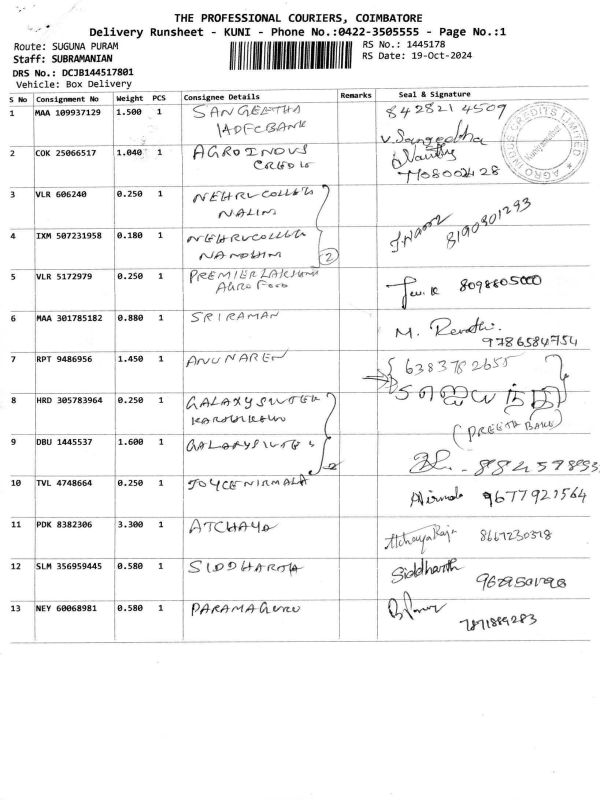 THE PROFESSIONAL COURIERS, COIMBATORE
Delivery Runsheet - KUNI - Phone No.:0422-3505555 - Page No.:1
Route: SUGUNA PURAM
RS No.: 1445178
Staff: SUBRAMANIAN
RS Date: 19-Oct-2024
DRS No.: DCJB144517801
Vehicle: Box Delivery
S No Consignment No Weight PCS Consignee Details Remarks Seal & Signature
1 MAA 109937129 1.500 1 SANGEETHA 8428214509
HDFC BANK
V. Sangeetha
2 COK 25066517 1.040 1 AGROINDUS
CREDIT
AGRO INDUS CREDITS LIMITED
3 VLR 606240 0.250 1 NEHRU COLLEGE
NALINI
8190301293
4 IXM 507231958 0.180 1 NEHRU COLLEGE
NANDHINI
2
5 VLR 5172979 0.250 1 PREMIER LAKSHMI 8098805000
AGRO FOOD
6 MAA 301785182 0.880 1 SRIRAMAN
M. Revathi
9786584754
7 RPT 9486956 1.450 1 ANUNAREN 6383782655
8 HRD 305783964 0.250 1 GALAXY
(PREETH BAKU)
9 DBU 1445537 1.600 1 GALAXY
2
10 TVL 4748664 0.250 1 JOYCENIRMALA Nirmala 9677921564
11 PDK 8382306 3.300 1 ATCHAYA AtchayaRaja 8667230378
12 SLM 356959445 0.580 1 SIDDHARTH Siddharth
13 NEY 60068981 0.580 1 PARAMAGURU
7871889283